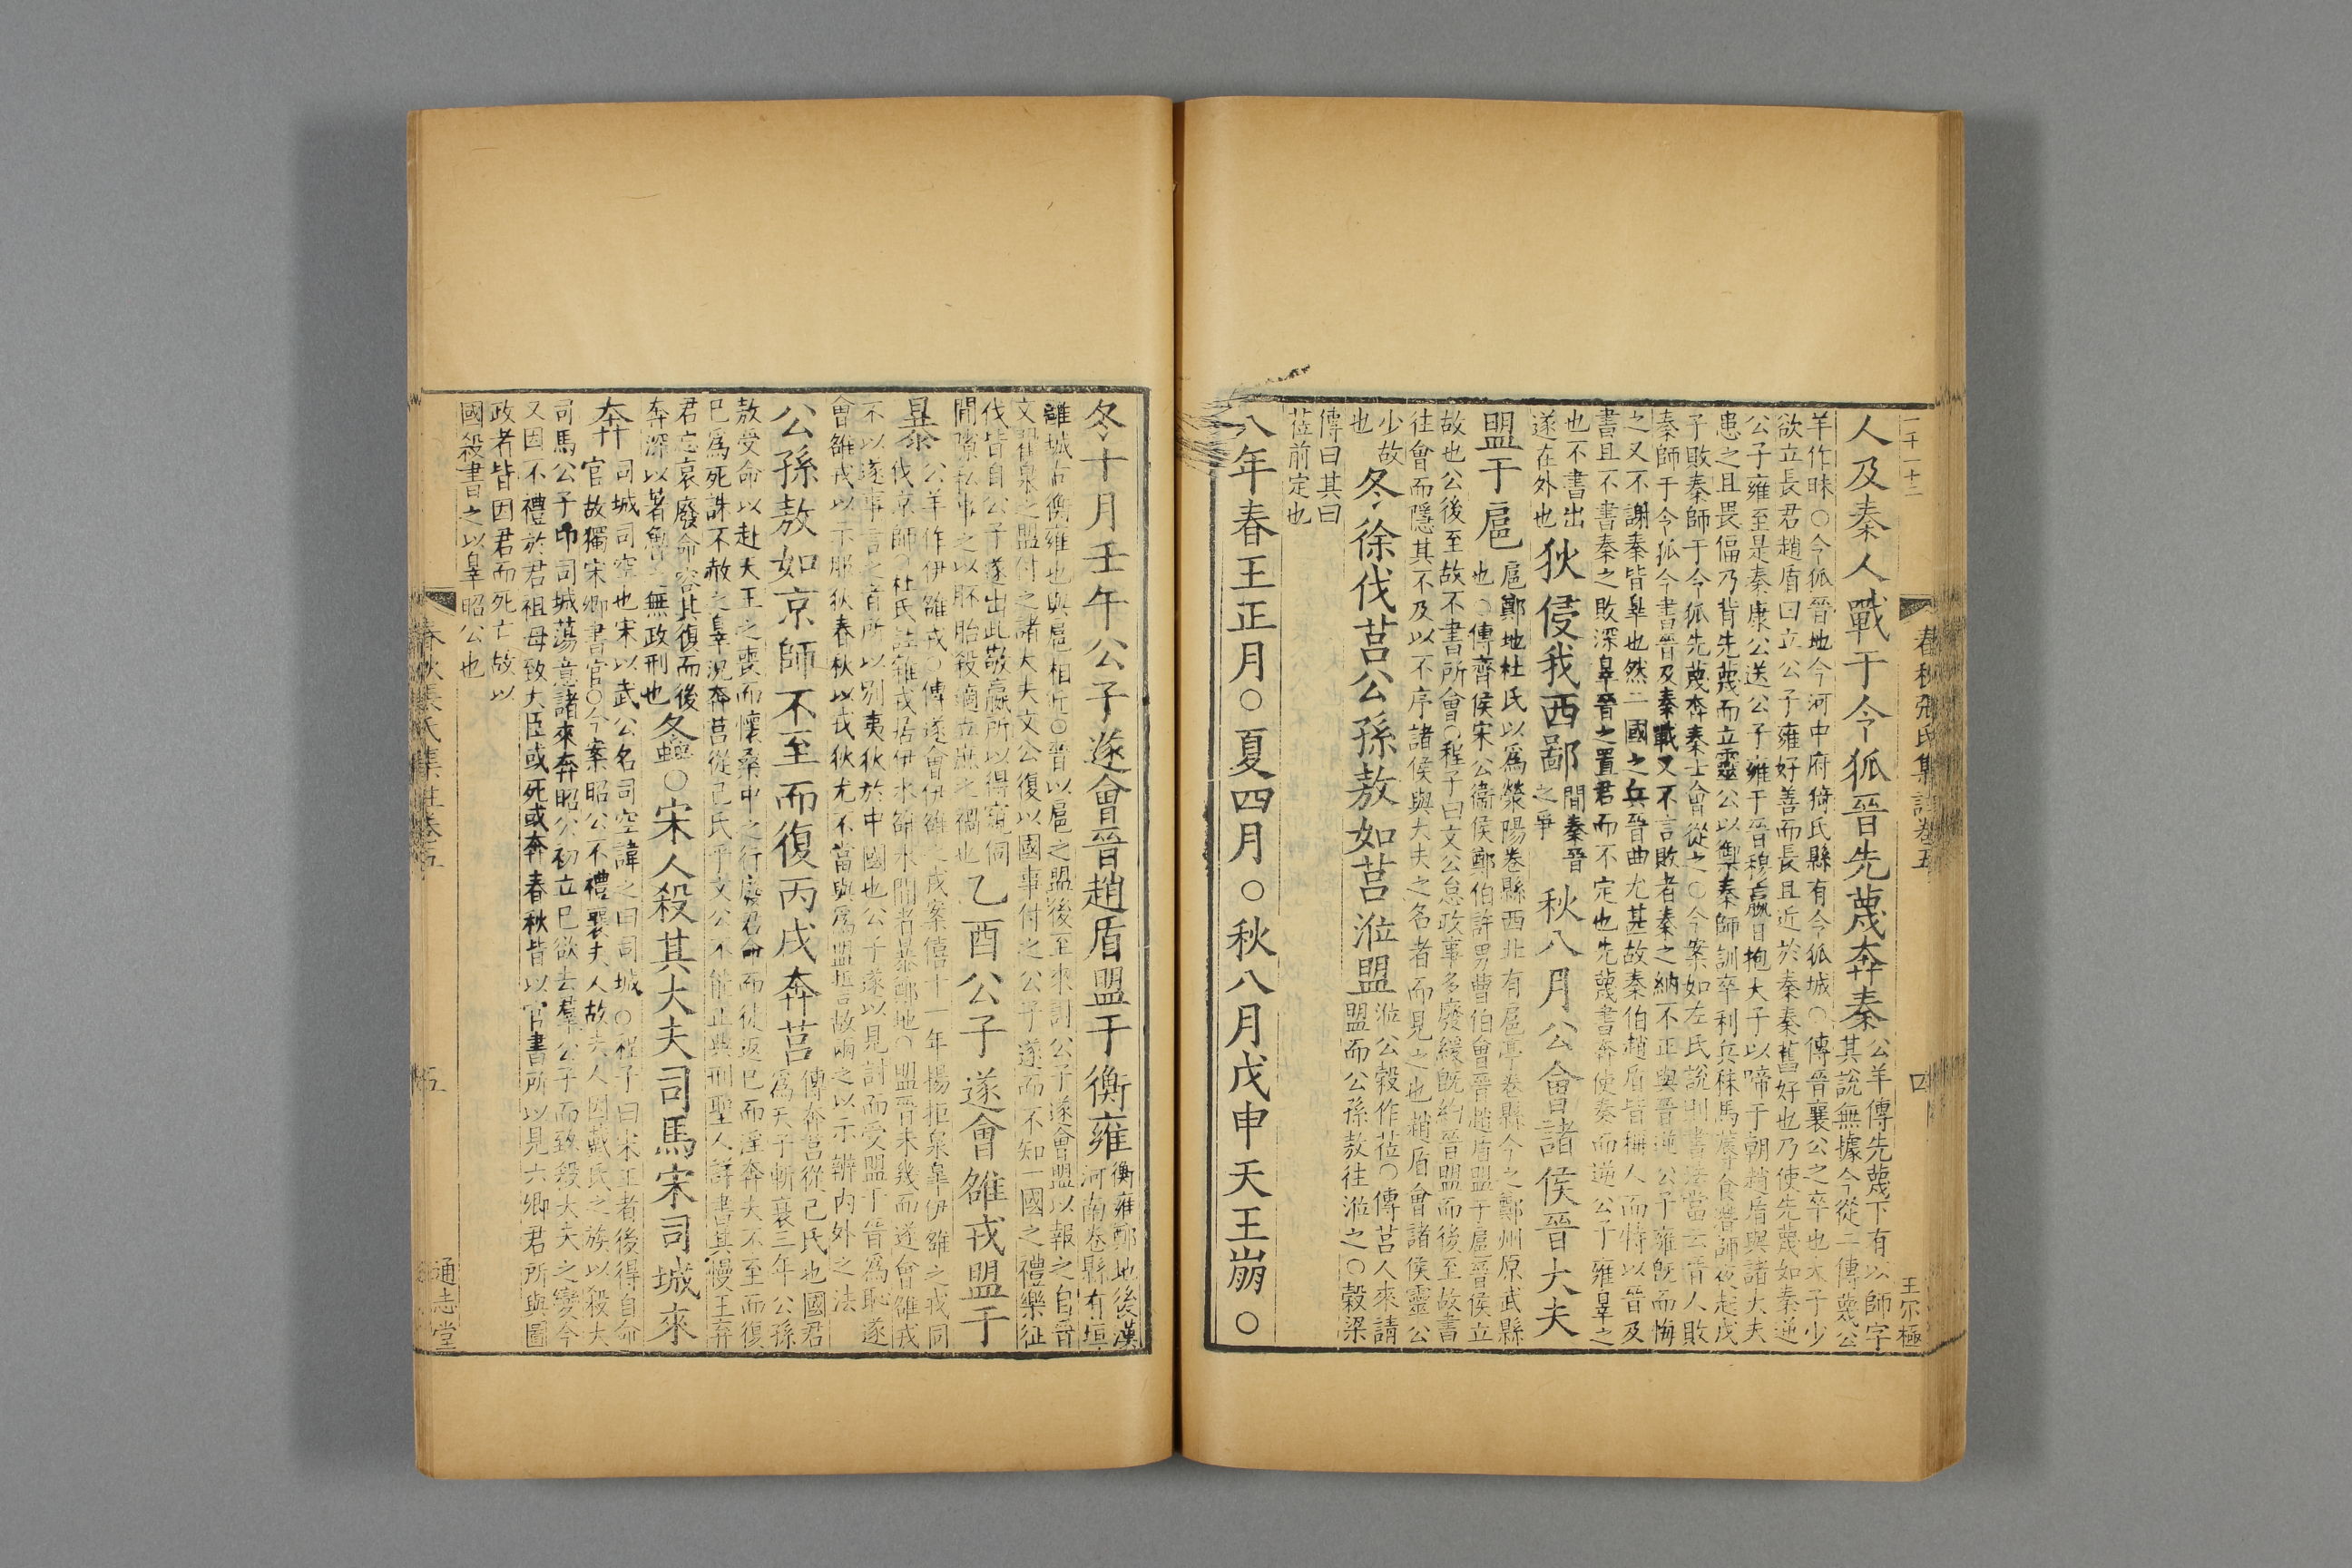 一千一十二
春秋張氏集註卷五
四
王不極
人及秦人戰于令狐晉先蔑奔秦
公羊傳先蔑下有以師字
其說無據今從二傳蔑公
羊作昧○令狐晉地今河中府猗氏縣有令狐城○傳晉襄公之卒也太子少
欲立長君趙盾曰立公子雍好善而長且近於秦秦舊好也乃使先蔑如秦逆
公子雍至是秦康公送公子雍于晉穆嬴日抱大子以啼于朝趙盾與諸大夫
患之且畏偪乃背先蔑而立靈公以禦秦師訓卒利兵秣馬蓐食潛師夜起戊
子敗秦師于令狐先蔑奔秦士會從之○今案如左氏說則書法當云晉人敗
秦師于令狐今書晉及秦戰又不言敗者秦之納不正與晉逆公子雍既而悔
之又不謝秦皆辠也然二國之兵晉曲尤甚故秦伯趙盾皆稱人而特以晉及
書且不書秦之敗深辠晉之置君而不定也先蔑書奔使秦而逆公子雍辠之
也不書出
遂在外也
狄侵我西鄙
間秦晉
之爭
秋八月公會諸侯晉大夫
盟于扈
扈鄭地杜氏以爲滎陽卷縣西北有扈亭卷縣今之鄭州原武縣
也○傳齊侯宋公衞侯鄭伯許男曹伯會晉趙盾盟于扈晉侯立
故也公後至故不書所會○程子曰文公怠政事多廢緩旣約晉盟而後至故書
往會而隱其不及以不序諸侯與大夫之名者而見之也趙盾會諸侯靈公
少故
也
冬徐伐莒公孫敖如莒涖盟
涖公穀作莅○傳莒人來請
盟而公孫敖往涖之○穀梁
傳曰其曰
莅前定也
八年春王正月○夏四月○秋八月戊申天王崩○
冬十月壬午公子遂會晉趙盾盟于衡雍
衡雍鄭地後漢
河南卷縣有垣
雝城古衡雍也與扈相近○晉以扈之盟後至來討公子遂會盟以報之自晉
文翟泉之盟付之諸大夫文公復以國事付之公子遂而不知一國之禮樂征
伐皆自公子遂出此敬嬴所以得窺伺
間隙私事之以胚胎殺適立庶之禍也
乙酉公子遂會雒戎盟于
暴
公羊作伊雒戎○傳遂會伊雒之戎案僖十一年揚拒泉皋伊雒之戎同
伐京師○杜氏註雒戎居伊水雒水間者暴鄭地○盟晉未幾而遂會雒戎
不以遂事言之者所以别夷狄於中國也公子遂以見討而受盟于晉爲恥遂
會雒戎以示那狄春秋以戎狄尤不當與爲盟拒言故兩之以示辨内外之法
公孫敖如京師不至而復丙戌奔莒
傳奔莒從己氏也國君
爲天子斬衰三年公孫
敖受命以赴天王之喪而懷桑中之行廢君命而徒返巳而淫奔夫不至而復
巳爲死誅不赦之辠況奔莒從己氏乎文公不能正典刑聖人詳書其慢王弃
君忘哀廢命容其復而後
奔深以著魯之無政刑也
冬螽○宋人殺其大夫司馬宋司城來
奔
司城司空也宋以武公名司空諱之曰司城○程子曰宋王者後得自命
官故獨宋卿書官○今案昭公不禮襄夫人故夫人因戴氏之族以殺大
司馬公子卬司城蕩意諸來奔昭公初立巳欲去羣公子而致殺大夫之變今
又因不禮於君祖母致大臣或死或奔春秋皆以官書所以見六卿君所與圖
政者皆因君而死亡故以
國殺書之以辠昭公也
春秋張氏集註卷五
五
通志堂